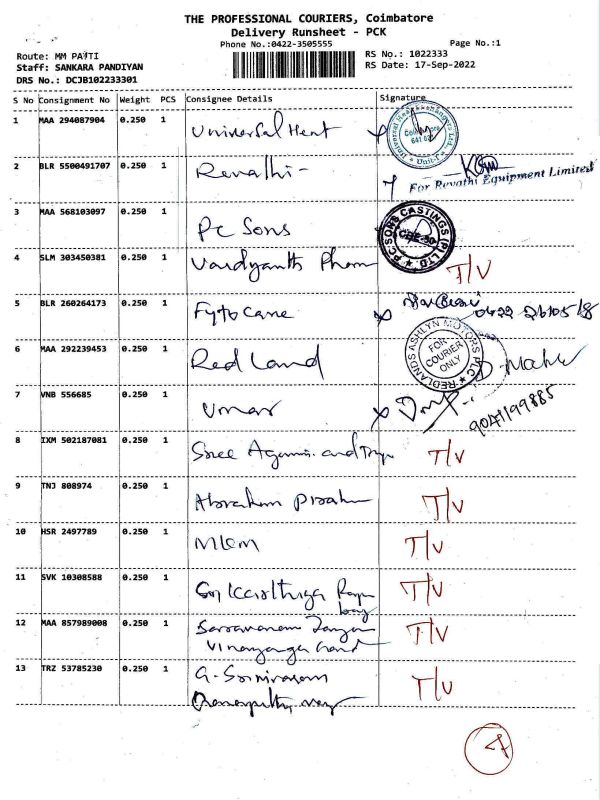 THE PROFESSIONAL COURIERS, Coimbatore
Delivery Runsheet - PCK
Phone No.:0422-3505555
Page No.:1
Route: MM PATTI
RS No.: 1022333
Staff: SANKARA PANDIYAN
RS Date: 17-Sep-2022
DRS No.: DCJB102233301
S No Consignment No Weight PCS Consignee Details Signature
1 MAA 294087904 0.250 1 Universal Heat
2 BLR 5500491707 0.250 1 Revathi -
For Revathi Equipment Limited
3 MAA 568103097 0.250 1 Pc Sons
PC SONS CASTINGS (P) LTD. CBE-30
4 SLM 303450381 0.250 1 T/V
5 BLR 260264173 0.250 1 Fyto Cane
6 MAA 292239453 0.250 1 Red Land
REDLANDS ASHLYN MOTORS PLC FOR COURIER ONLY
7 VNB 556685 0.250 1 Umar
9041199885
8 IXM 502187081 0.250 1 Sree and T/V
9 TNJ 808974 0.250 1 Abraham T/V
10 HSR 2497789 0.250 1 T/V
11 SVK 10308588 0.250 1 Sri Karthiga T/V
12 MAA 857989008 0.250 1 T/V
Vinayaga
13 TRZ 53785230 0.250 1 G. Srinivasan T/V